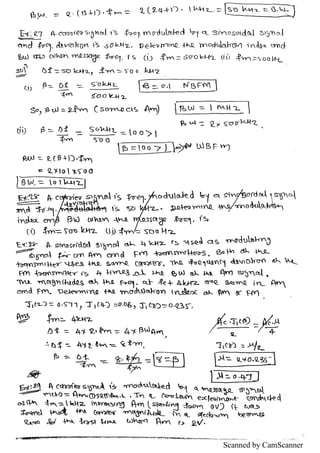 B.W. = 2·(β+1)·fm = 2(24+1)·1kHz = 50 kHz = B.W.
Ex:27 A carrier signal is freq modulated by a sinosoidal signal
and freq. deviation is 50kHz. Determine the modulation index and
BW when message freq. is (i) fm = 500kHz (ii) fm = 500Hz
Δf = 50 kHz, fm = 500 kHz
(i) β = Δf/fm = 50kHz/500kHz β = 0.1 NBFM
So, BW = 2fm (same as AM) BW = 1 MHz
BW = 2 × 500kHz
(ii) β = Δf/fm = 50kHz/500 = 100 > 1
β = 100 > 1 WBFM
BW = 2(β+1)·fm
= 2×101×500
B.W. = 101 kHz
Ex:28 A carrier signal is freq. modulated by a sinosoidal signal
and is 50 kHz. Determine the modulation
index and BW when the message freq. is
(i) fm = 500 kHz (ii) fm = 500 Hz
Ex:28- A sinosoidal signal at 4 kHz is used as modulating
signal for an AM and FM transmitters. Both the
transmitter uses the same carrier. The frequency deviation of the
FM transmitter is 4 times of the BW of the AM signal.
The magnitudes of the freq. at fc ± 4kHz are same in AM
and FM. Determine the modulation index of AM & FM.
J1(2) = 0.577, J1(4) = 0.06, J1(8) = 0.235.
Ans fm = 4kHz
Δf = 4×2·fm = 4×BW AM
∴ Δf = 4×2·fm = 8fm
β = Δf/fm = 8·fm/fm = 8 = β
Ac·J1(β)/2 = Ac·μ/4
J1(8) = μ/2
μ = 2×0.235
μ = 0.47
Ex:29 A carrier signal is modulated by a message signal
m(t) = Am cos 2πfmt. In a certain experiment conducted
with fm = 1kHz increasing Am (starting from 0V) it was
found that the carrier magnitude in a spectrum becomes
zero for the first time when Am is 2V.
Scanned by CamScanner